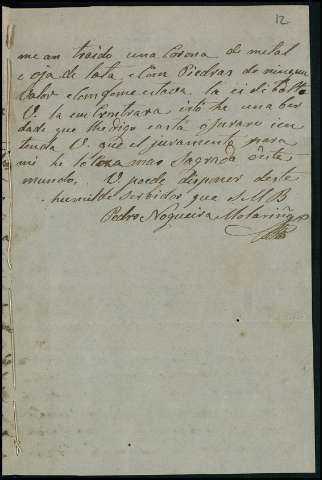 12
me an traido una Corona de metal
e oja de lata e Con Piedras de ningun
Valor e Comqome estava la ei di
V. la en Contrara isto he una ber
dade que lhe digo easta ojuraré ien
tenda V. que el juramento para
mi he lo mas Sagrado deste
mundo. V. puede disponer deste
humilde serbidor que S. M. B
Pedro Nogueira Molariños